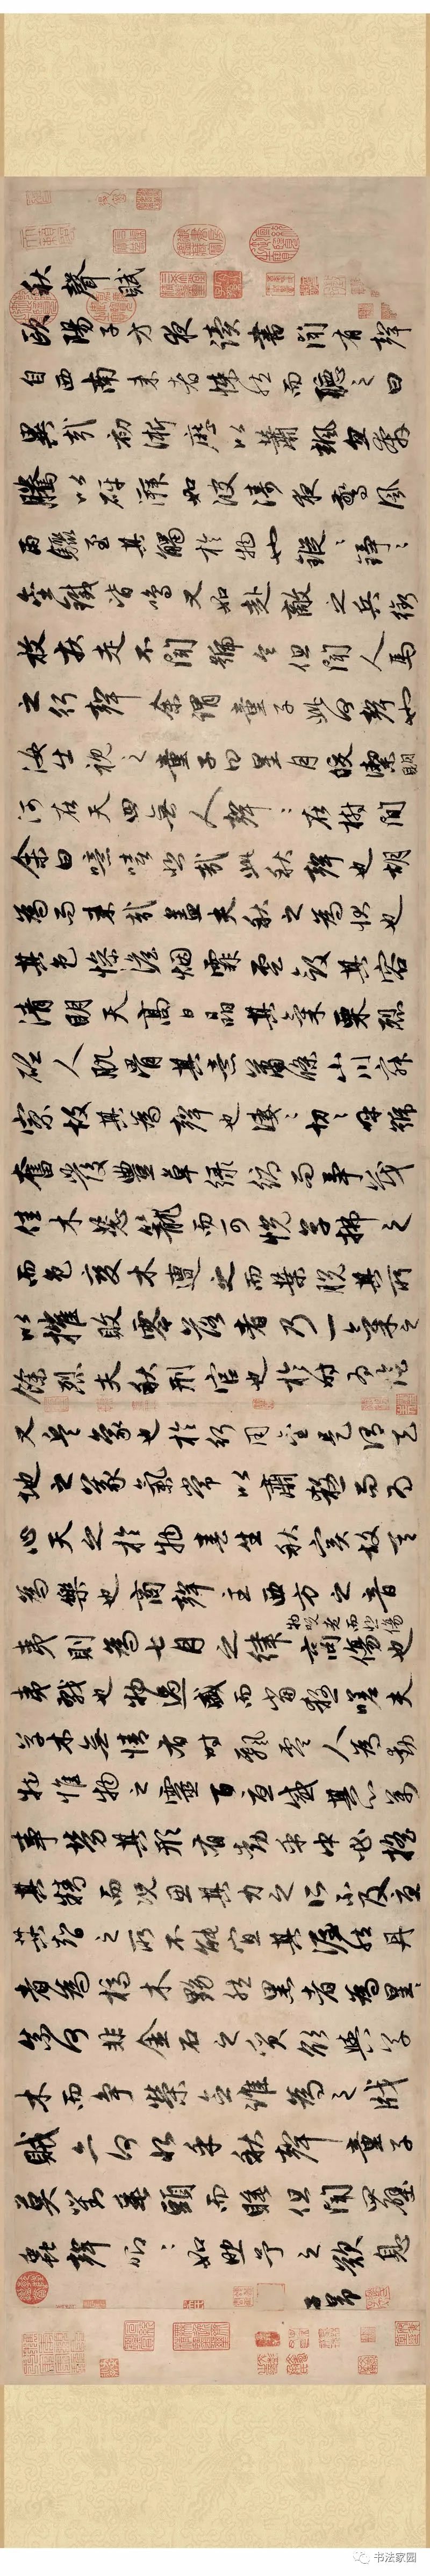 秋聲賦
歐陽子方夜讀書聞有聲
自西南來者悚然而聽之曰
異哉初淅瀝以蕭颯忽奔
騰以砰湃如波濤夜驚風
雨驟至其觸於物也鏦〻錚〻
金鐵皆鳴又如赴敵之兵銜
枚疾走不聞號令但聞人馬
之行聲余謂童子此何聲也
汝出視之童子曰星月皎潔明
河在天四無人聲〻在樹間
余曰噫嘻悲哉此秋聲也胡
為而來哉蓋夫秋之為狀也
其色慘澹烟霏雲斂其容
清明天高日晶其氣栗烈
砭人肌骨其意蕭條山川寂
寥故其為聲也淒〻切〻呼號
奮發豐草綠縟而爭茂
佳木葱蘢而可悅草拂之
而色變木遭之而葉脫其所
以摧敗零落者乃一氣之
餘烈夫秋刑官也於時為陰
又兵象也於行用金是謂天
地之義氣常以肅殺而為
心天之於物春生秋實故其
為樂也商聲主西方之音
夷則為七月之律商傷也
物既老而悲傷
夷戮也物過盛而當殺嗟夫
草木無情有時飄零人為動
物惟物之靈百憂感其心萬
事勞其形有動乎中必搖
其精而況思其力之所不及憂
其智之所不能宜其渥然丹
者為槁木黟然黑者為星〻
奈何非金石之質欲與草
木而爭榮念誰為之戕
賊亦何恨乎秋聲童子
莫對垂頭而睡但聞四壁
蟲聲唧〻如助予之歎息
子昂
书法家园